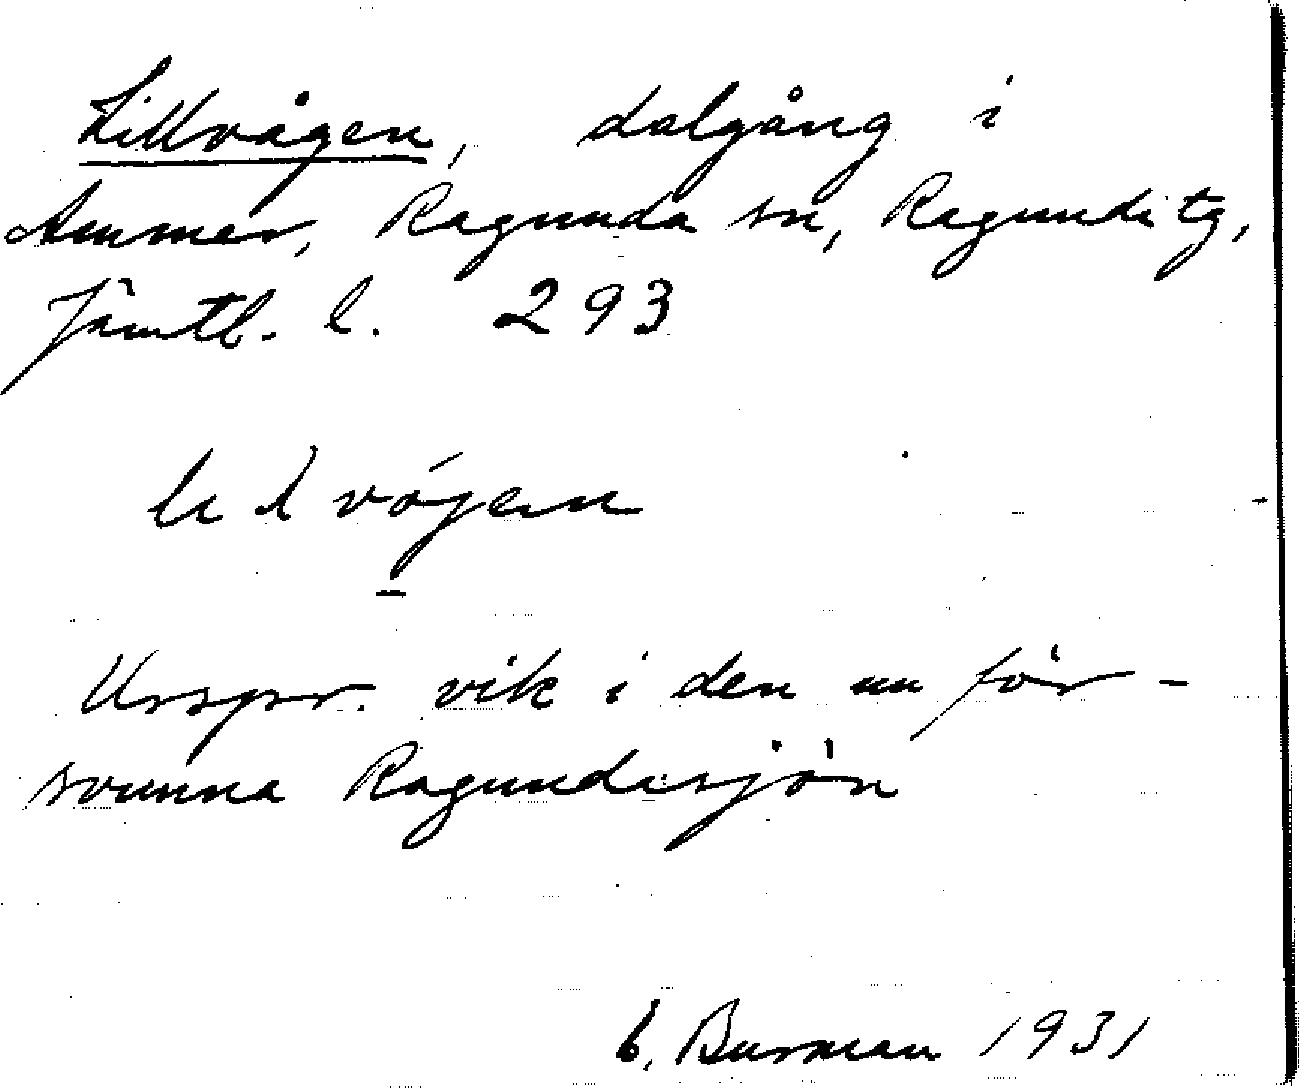 Lillvågen, dalgång i
Ammer, Ragunda sn, Ragunda tg,
Jämtl. l. 293
vójen
Urspr. vik i den nu för-
svunna Ragundasjön
E. Burman 1931